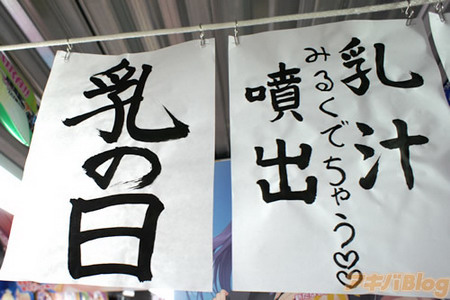 乳の日
乳汁
みるくでちゃう♡♡
噴出
アキバBlog